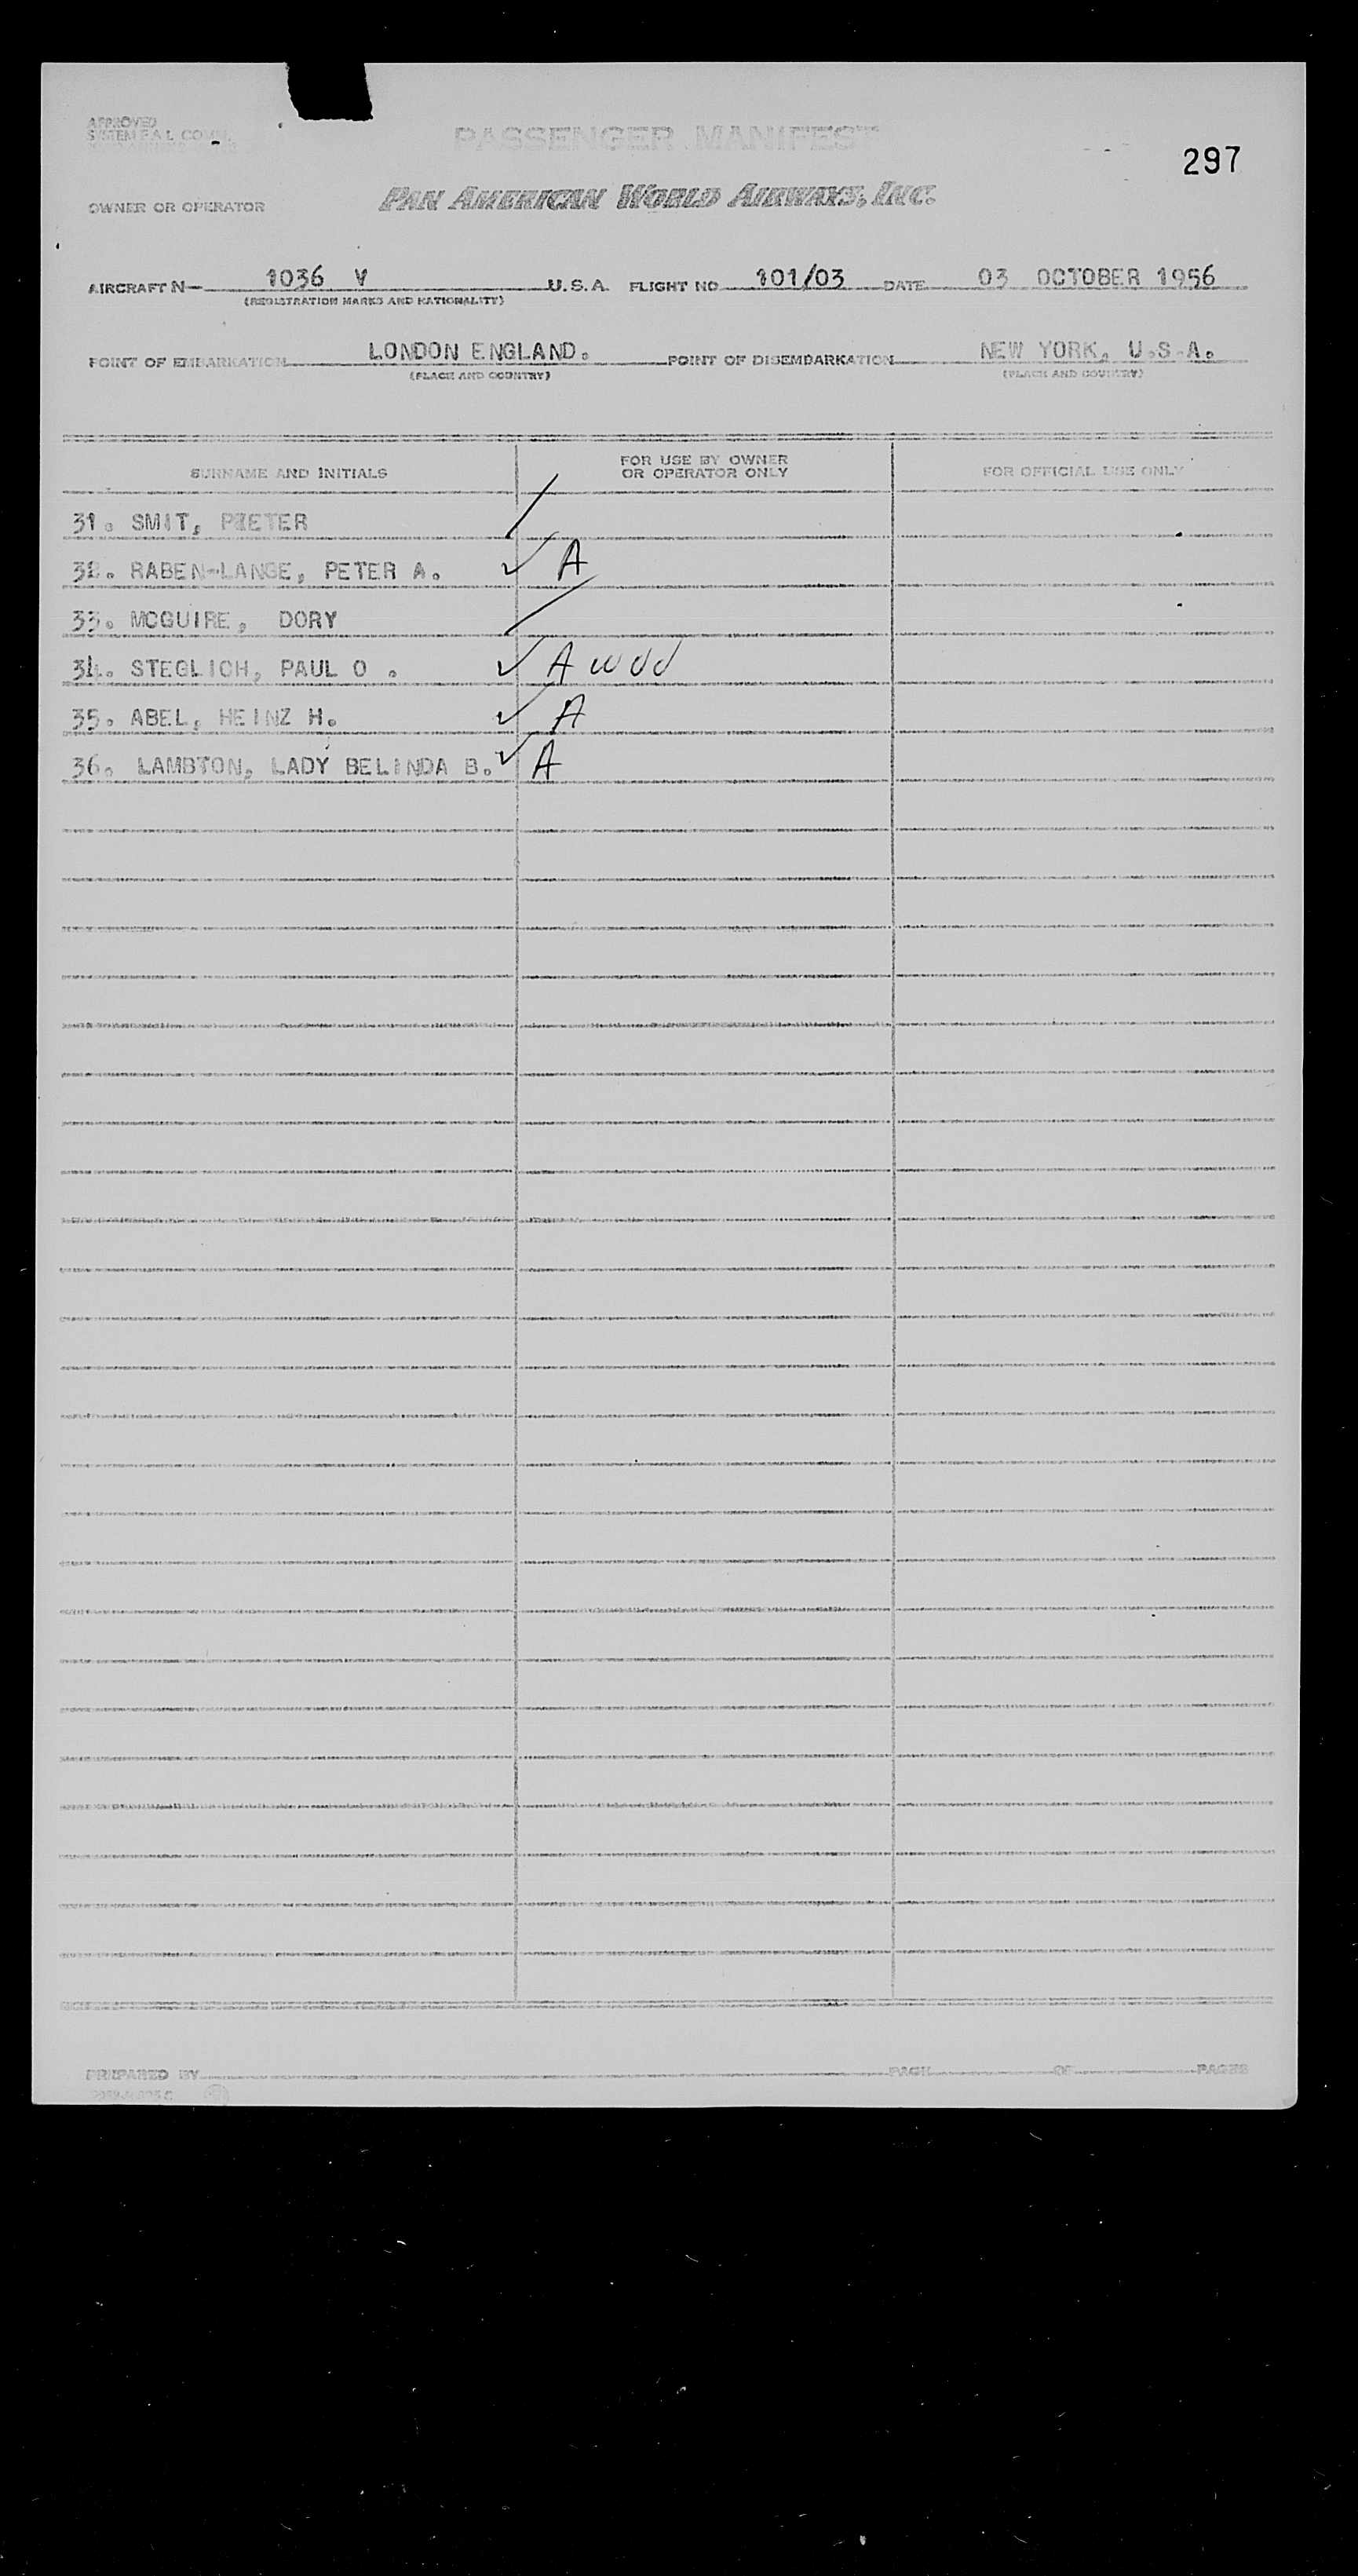 APPROVED
SYSTEM F.A.L. COMM.
PASSENGER MANIFEST
297
OWNER OR OPERATOR PAN AMERICAN WORLD AIRWAYS, INC.
AIRCRAFT N- 1036 V U.S.A. FLIGHT NO 101/03 DATE 03 OCTOBER 1956
(REGISTRATION MARKS AND NATIONALITY)
POINT OF EMBARKATION LONDON ENGLAND. POINT OF DISEMBARKATION NEW YORK, U.S.A.
(PLACE AND COUNTRY) (PLACE AND COUNTRY)
SURNAME AND INITIALS FOR USE BY OWNER OR OPERATOR ONLY FOR OFFICIAL USE ONLY
31. SMIT, PIETER
32. RABEN-LANGE, PETER A. ✓ A
33. MCGUIRE, DORY
34. STEGLICH, PAUL O . ✓ A
35. ABEL, HEINZ H. ✓ A
36. LAMBTON, LADY BELINDA B. ✓ A
PREPARED BY PAGE OF PAGES